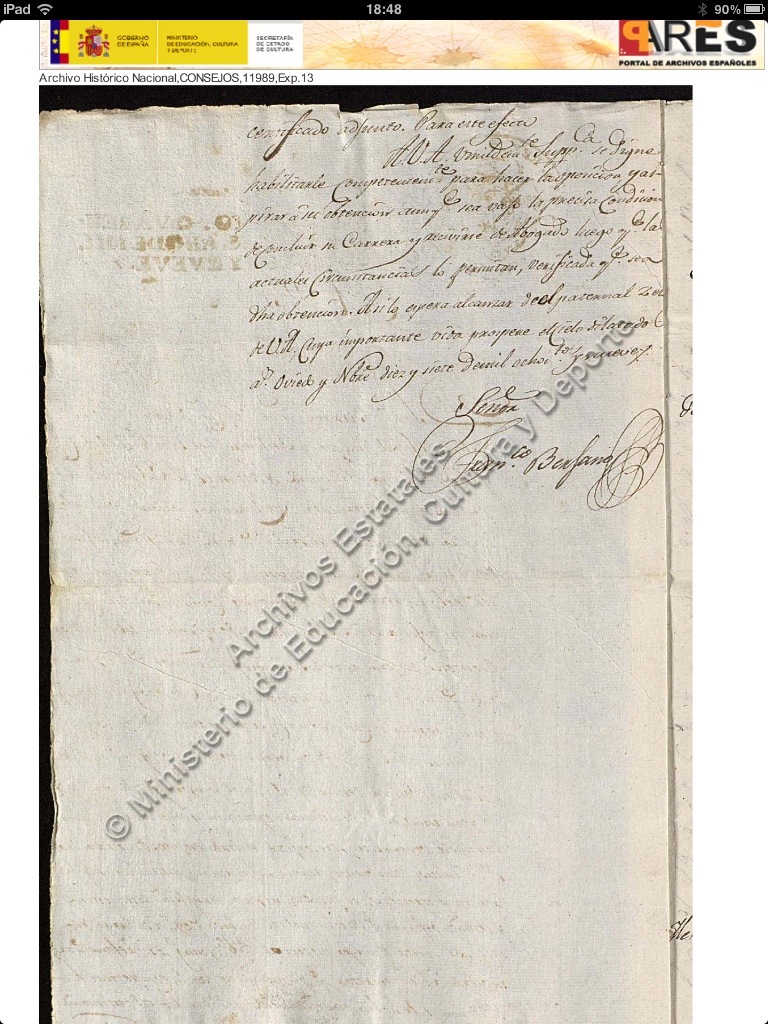 iPad 18:48 90%
GOBIERNO DE ESPAÑA
MINISTERIO DE EDUCACIÓN, CULTURA Y DEPORTE
SECRETARÍA DE ESTADO DE CULTURA
PARES
PORTAL DE ARCHIVOS ESPAÑOLES
Archivo Histórico Nacional,CONSEJOS,11989,Exp.13
certificado adjunto. Para este efecto
A.V.A. Supp.ca se digne
habilitarle competentem.te para hacer la oposicion, y as-
pirar á su obtencion aunq.e sea vajo la precisa condicion
de concluir su Carrera y recivirse de Abogado luego q.e la
actuales Circunstancias lo permitan, verificada q.e sea
dha obtencion. Asi lo espera alcanzar del paternal zelo
de V.A. Cuya importante vida prospere el cielo dilatado
a.s Oviedo y Nobre diez y siete de mil ochoc.tos y nueve.
Señor
Fran.co
© Ministerio de Educación, Cultura y Deporte
Archivos Estatales